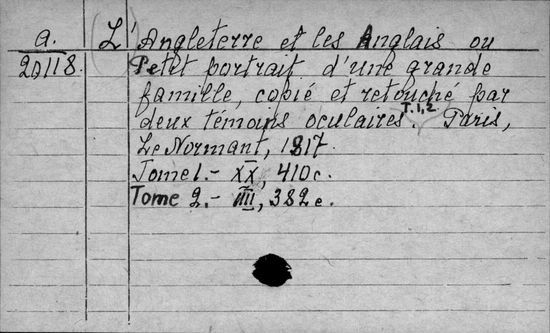 a. (L')Angleterre et les Anglais ou
20118. Petit portrait d'une grande
famille, copié et retouché par
deux témoins oculaires. T.1,2. Paris,
Le Normant, 1817.
Tome 1.- XX, 410 c.
Tome 2.- III, 382 c.